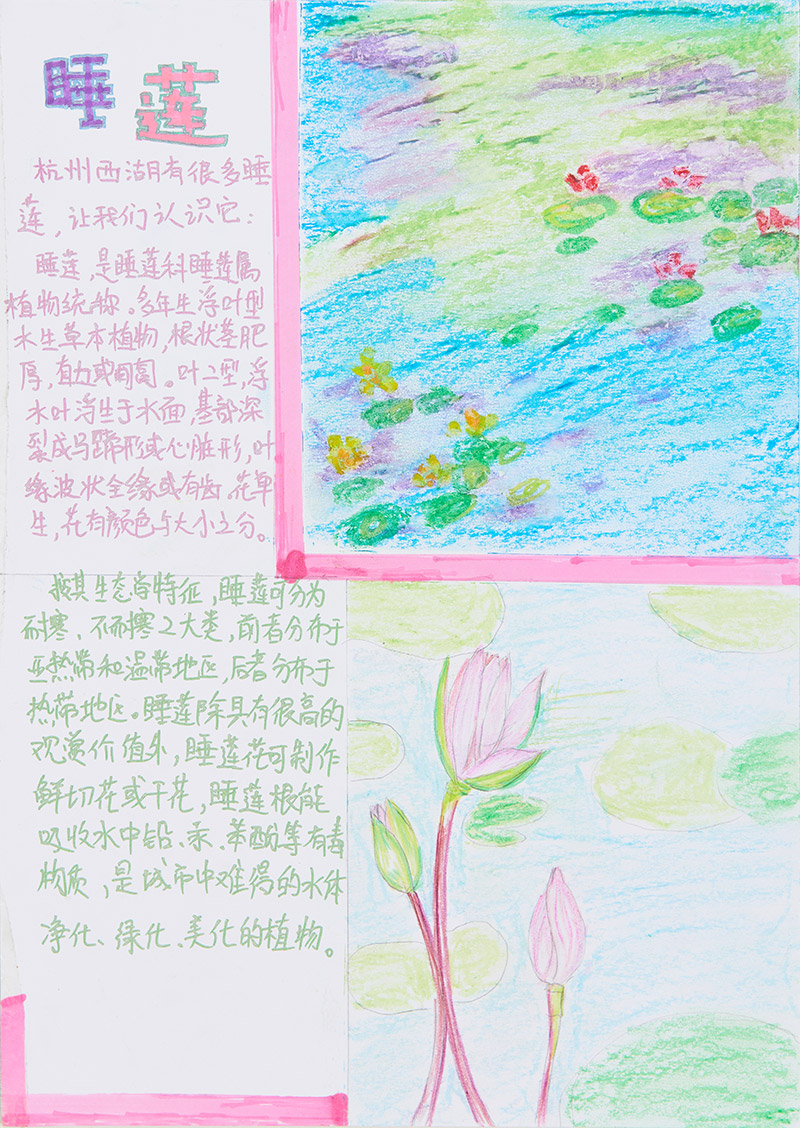 睡莲
杭州西湖有很多睡
莲,让我们认识它:
睡莲,是睡莲科睡莲属
植物统称。多年生浮叶型
水生草本植物,根状茎肥
厚,直立或匍匐。叶二型,浮
水叶浮生于水面,基部深
裂成马蹄形或心脏形,叶
缘波状全缘或有齿。花单
生,花有颜色与大小之分。
按其生态学特征,睡莲可分为
耐寒、不耐寒2大类,前者分布于
亚热带和温带地区,后者分布于
热带地区。睡莲除具有很高的
观赏价值外,睡莲花可制作
鲜切花或干花,睡莲根能
吸收水中铅、汞、苯酚等有毒
物质,是城市中难得的水体
净化、绿化、美化的植物。